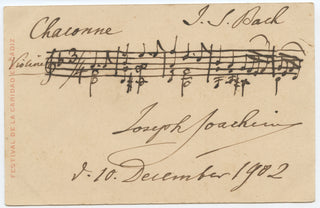 Chaconne J. S. Bach
Violine
Joseph Joachim
d. 10. December 1902
FESTIVAL DE LA CARIDAD CADIZ